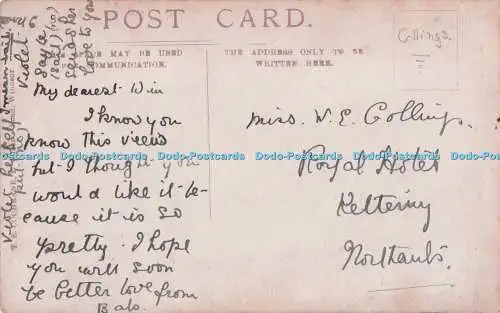 POST CARD.
MAY BE USED
COMMUNICATION.
THE ADDRESS ONLY TO BE
WRITTEN HERE.
Collings
My dearest Win
I know you
know this view
but I thought you
would like it be-
cause it is so
pretty. I hope
you will soon
be better love from
Babs.
Miss. W. E. Collings.
Royal Hotel
Kettering
Northants.
Violet
says
sends her
love to you
Dodo-Postcards Dodo-Postcards Dodo-Postcards Dodo-Postcards Dodo-Postcards Dodo-Postcards